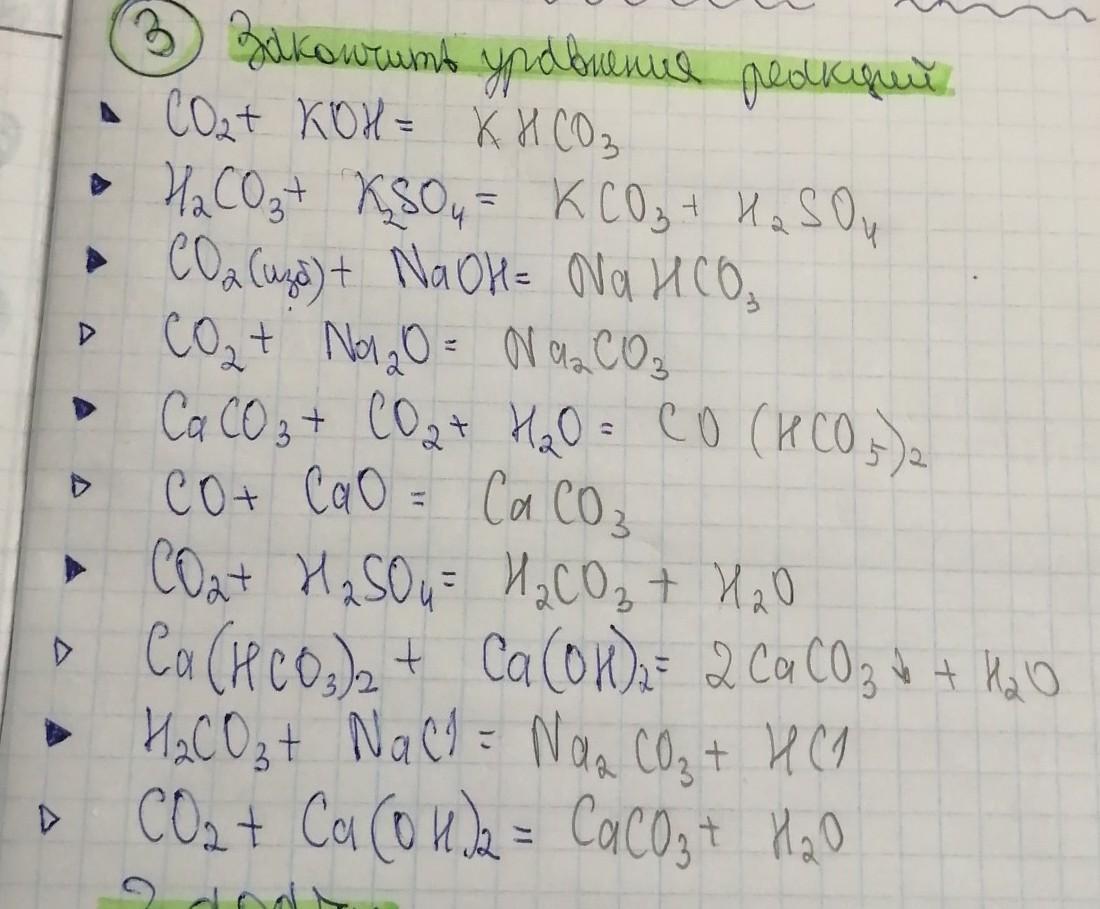 3 Закончить уравнения реакций
CO₂ + KOH = KHCO₃
H₂CO₃ + K₂SO₄ = KCO₃ + H₂SO₄
CO₂(изб) + NaOH = NaHCO₃
CO₂ + Na₂O = Na₂CO₃
CaCO₃ + CO₂ + H₂O = CO(HCO₅)₂
CO + CaO = CaCO₃
CO₂ + H₂SO₄ = H₂CO₃ + H₂O
Ca(HCO₃)₂ + Ca(OH)₂ = 2CaCO₃↓ + H₂O
H₂CO₃ + NaCl = Na₂CO₃ + HCl
CO₂ + Ca(OH)₂ = CaCO₃ + H₂O